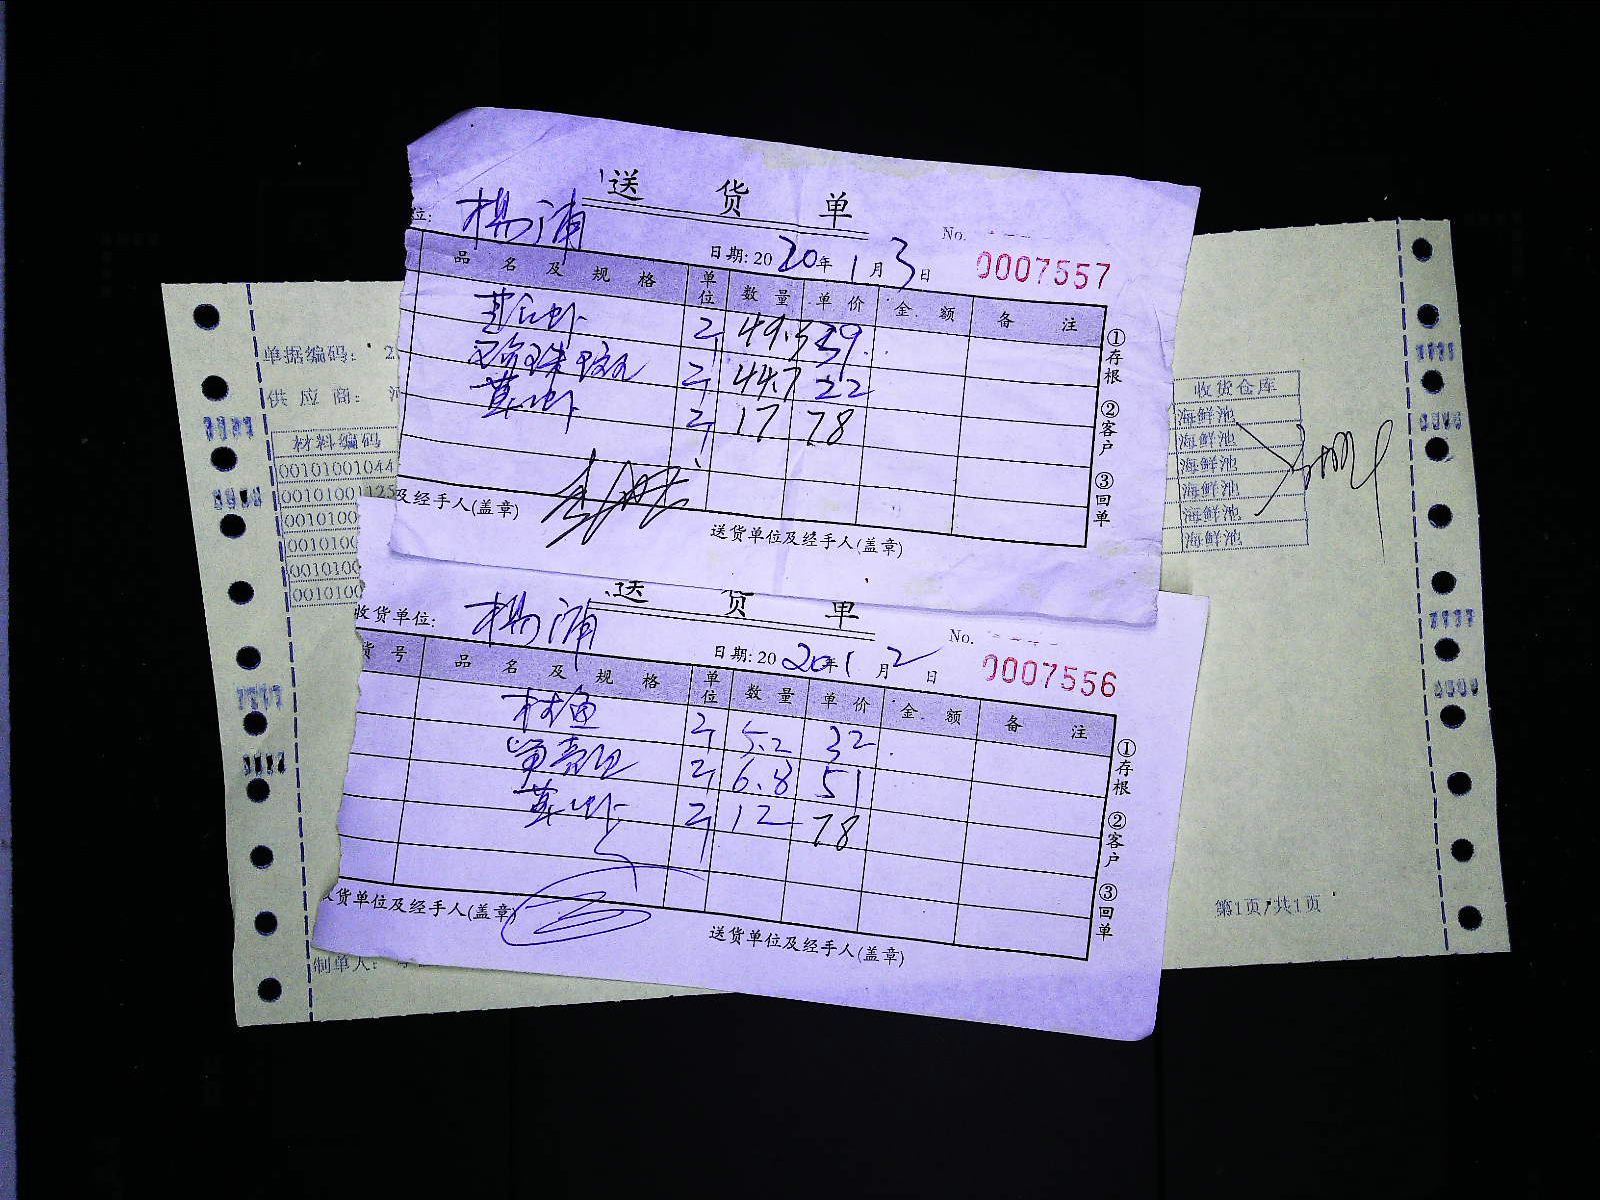 送 货 单
位: 杨浦
No.
日期: 2020年1月3日
0007557
品 名 及 规 格 单位 数 量 单 价 金 额 备 注
斤 49.3 39
斤 44.7 22
斤 17 78
①存根 ②客户 ③回单
及经手人(盖章)
送货单位及经手人(盖章)
送 货 单
收货单位: 杨浦
No.
日期: 2020年1月2日
0007556
货 号 品 名 及 规 格 单位 数 量 单 价 金 额 备 注
斤 5.2 32
斤 6.8 51
斤 12 78
①存根 ②客户 ③回单
货单位及经手人(盖章)
送货单位及经手人(盖章)
单据编码: 2
供 应 商:
材料编码
00101001044
00101001125
0010100
0010100
0010100
0010100
收货仓库
海鲜池
海鲜池
海鲜池
海鲜池
海鲜池
海鲜池
第1页/共1页
制单人: